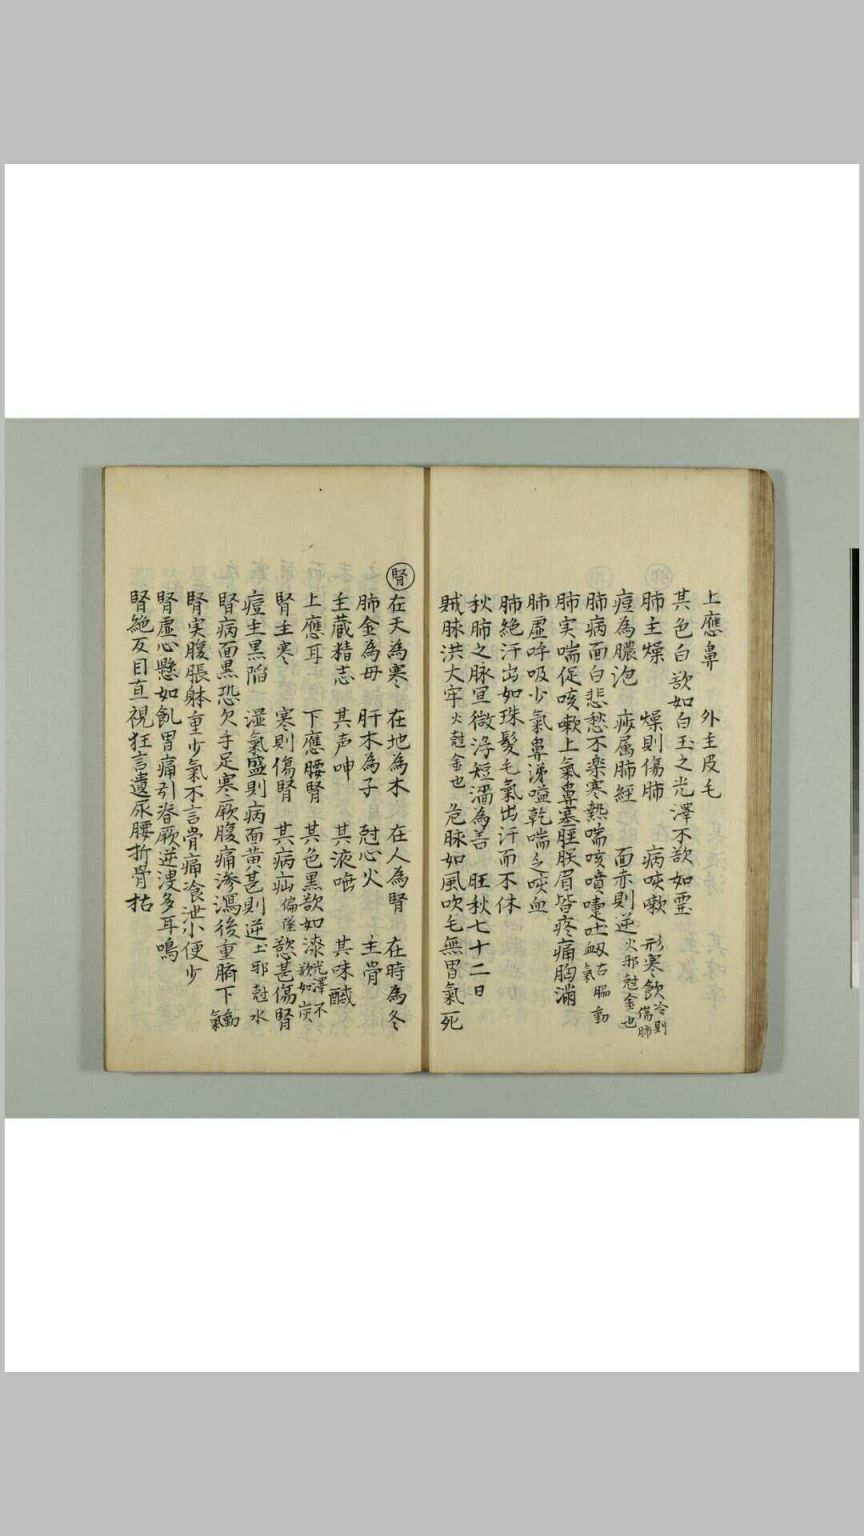 上應鼻　外主皮毛
其色白欲如白玉之光澤不欲如堊
肺主燥　燥則傷肺　病咳嗽　形寒飲冷則傷肺
痘為膿泡　疹属肺經　面赤則逆火邪尅金也
肺病面白悲愁不楽寒熱喘咳噴嚏吐衂右脇動氣
肺実喘促咳嗽上氣鼻塞脛朕眉皆疼痛胸満
肺虛呼吸少氣鼻涕嗌乾喘乏咳血
肺絶汗出如珠髮毛氣出汗而不休
秋肺之脉宜微浮短濇為善　旺秋七十二日
賊脉洪大牢火尅金也　危脉如風吹毛無胃氣死
腎　在天為寒　在地為木　在人為腎　在時為冬
肺金為母　肝木為子　尅心火　主骨
主藏精志　其声呻　其液唾　其味醎
上應耳　下應腰腎　其色黒欲如漆光澤不欲如炭
腎主寒　寒則傷腎　其病疝偏墜慾甚傷腎
痘主黒陥　湿氣盛則病面黄甚則逆土邪尅水
腎病面黒恐欠手足寒厥腹痛滲瀉後重臍下動氣
腎実腹脹躰重少氣不言骨痛飧泄小便少
腎虛心懸如飢胃痛引脊厥逆溲多耳鳴
腎絶反目直視狂言遺尿腰折骨枯